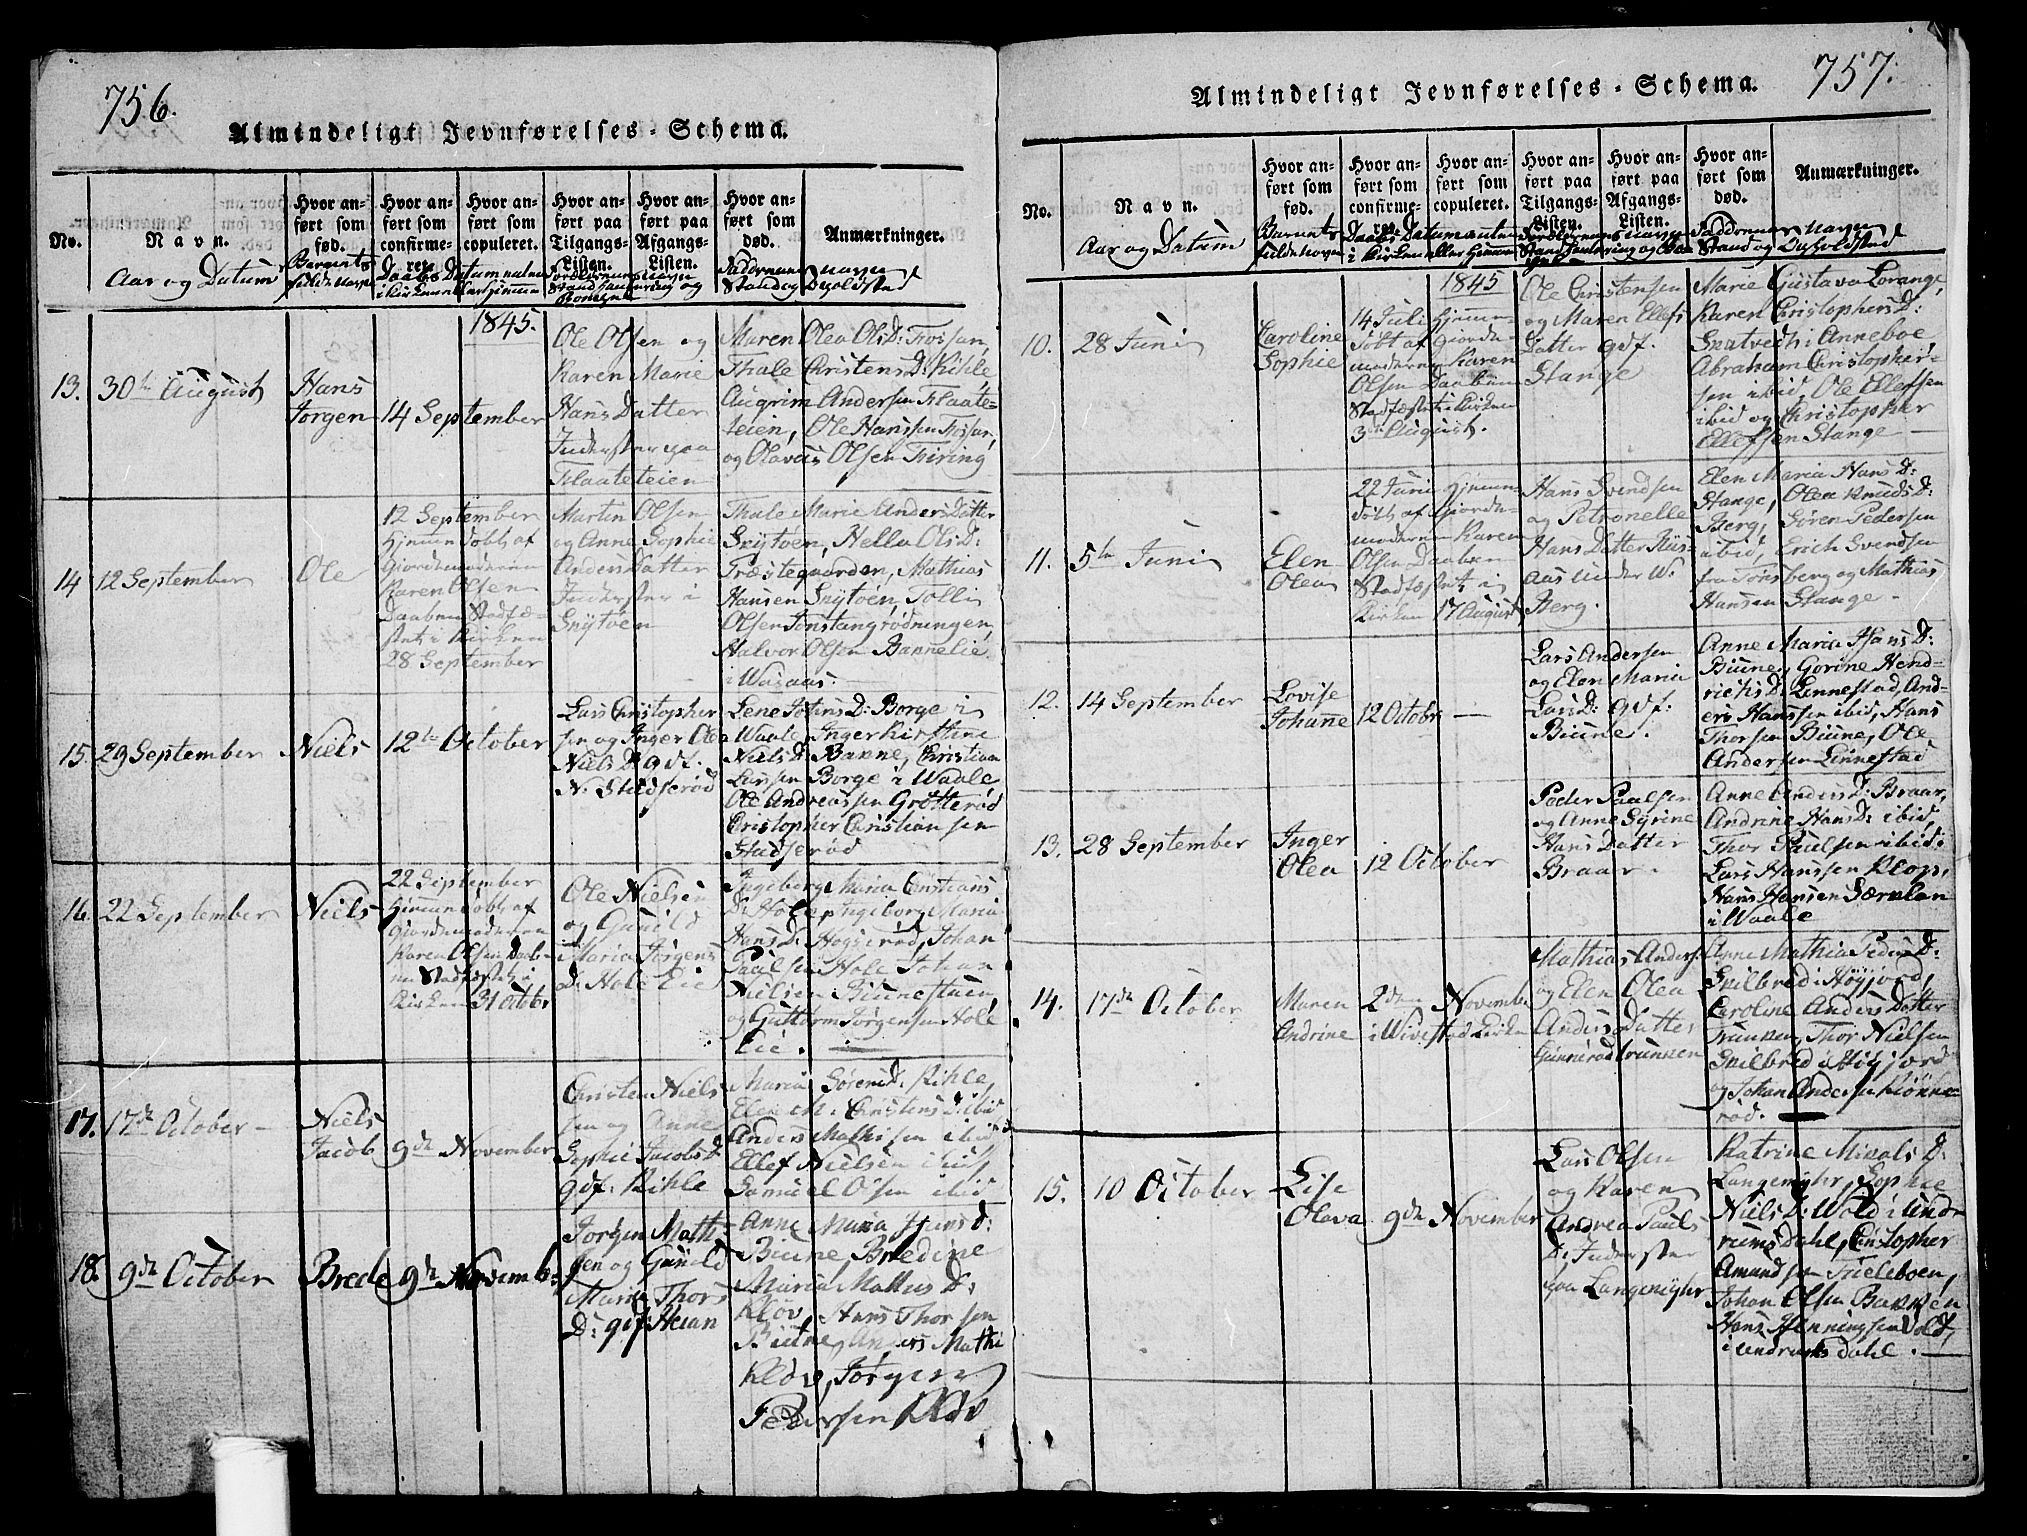 756.
Almindeligt Jevnførelses-Schema.
No.
Navn.
Aar og Datum
Hvor an-
ført som
fød.
Barnets
fulde Navn
Hvor an-
ført som
confirme-
ret.
Hvor an-
ført som
copuleret.
Daabs Datum enten
i Kirken eller Hjemme
Hvor an-
ført paa
Tilgangs-
Listen.
Hvor an-
ført paa
Afgangs-
Listen.
Forældrenes Navn
Stand Handtering og
Hvor an-
ført som
død.
Anmærkninger.
Faddernes Navn
Stand og Opholdsted
1845.
13.
30te August
Hans
Jørgen
14 September
Ole Olsen og
Karen Marie
Hans Datter
Inderster paa
Flaateteien
Maren Olea Ols D:
Thale Christens D: Kihle
Augrim Andersen Flaate-
teien, Ole Hanssen
og Olavus Olsen Firing
14
12 September
Ole
12 September
Hjemmedøbt af
Giordemoderen
Karen Olsen
Daaben Stadfæ-
stet i Kirken
28 September
Martin Olsen
og Anne Sophie
Anders Datter
Inderster i
Snytoen
Thale Marie Anders Datter
Snytoen, Hella Ols D:
Præstegaarden, Mathias
Hansen Snytoen,
Olsen
Halvor Olsen Bannelie
15.
29 September
Niels
12te October
Lars Christopher
sen og Inger Olea
Niels D gdf.
N. Stadserød
Lene Johns D: Borge i
Waale, Inger Kirstine
Niels D: Banne, Christian
Larssen Borge i Waale
Ole Andreassen Grøtterød
Christopher Christiansen
Stadserød
16.
22 September
Niels
22 September
Hjemmedøbt af
Giordemoderen
Karen Olsen Daab-
en Stadfæstet i
Kirken 31 Octbr
Ole Nielsen
og Gunild
Maria Jørgens
D. Hole Eie
Ingeborg Maria Christians
D: Hole, Ingeborg Maria
Hans D: Høgserød, Johan
Paulsen Hole Johan
Nielsen
og Guttorm Jørgensen Hole
Eie.
17.
17de October
Niels
Jacob
9de November
Christen Niels
sen og Anne
Sophie Jacobs D
gdf: Kihle
Maria Sørens D: Kihle,
Elen M: Christens D: ibid
Anders Mathisen ibid
Ellef Nielsen ibid
Samuel Olsen ibid
18.
9de October
Brede
9de Novemb:
Jørgen Math-
sen og Gunild
Maria Thors
D: gdf: Heian
Anne Maria Hans d:
Biune Bredine
Maria Mathis D:
Kløv, Hans Thorsen
Biune, Anders Mathi
Kløv, Jørgen
Pedersen Kløv
757.
Almindeligt Jevnførelses-Schema.
No.
Navn.
Aar og Datum
Hvor an-
ført som
fød.
Barnets
fulde Navn
Hvor an-
ført som
confirme-
ret.
Hvor an-
ført som
copuleret.
Daabs Datum enten
i Kirken eller Hjemme
Hvor an-
ført paa
Tilgangs-
Listen.
Hvor an-
ført paa
Afgangs-
Listen.
Forældrenes Navn
Hvor an-
ført som
død.
Anmærkninger.
Faddernes Navn
Stand og Opholdsted
1845
10.
28 Juni
Caroline
Sophie
14 Juli Hjemme-
døbt af Giorde-
moderen Karen
Olsen Daaben
Stadfæstet i Kirken
3de August.
Ole Christensen
og Maren Ellefs
Datter gdf.
Stange
Marie Gustava Lorange,
Karen Christophers D:
Anneboe,
Abraham Christopher-
sen ibid, Ole Ellefsen
ibid og Christopher
Ellefsen Stange
11.
5te Juni
Elen
Olea
22 Juni Hjemme-
døbt af Giorde-
moderen Karen
Olsen Daaben
Stadfæstet i
Kirken 17 August
Hans Svendsen
og Petronelle
Hans Datter Huus
aas under W.
Berg.
Elen Maria Hans D:
Stange, Olea Knuds D:
Berg, Søren Pedersen
ibid, Erich Svendsen
fra Tønsberg og Mathias
Hansen Stange
12.
14 September
Lovise
Johanne
12 Octobr
Lars Andersen
og Elen Maria
Lars D: gdf:
Biune.
Anne Maria Hans D:
Biune, Gorine Hend-
richs D: Linnestad, And-
ers Hanssen ibid, Hans
Thorsen Biune, Ole
Andersen Linnestad
13.
28 September
Inger
Olea
12 October
Peder Paulsen
og Anne Syrine
Hans Datter
Braar.
Anne Anders D: Braar,
Andrine Hans D: ibid,
Thor Paulsen ibid:
Lars Hanssen Klop,
Hans Hansen
i Waale
14.
17de October
Maren
Andrine
2den November
i Wivestad Kirke
Mathias Anders
og Elen Olea
Anders Datter
Anne Mathia Peders D:
Skilbred i Høyjord,
Caroline Anders Datter
Thor Nielsen
Skilbred i Høyjord
og Johan Andersen Rønne-
rød.
15.
10 October
Lise
Olava
9de November
Lars Olsen
og Karen
Andrea Pauls
D: Inderster
paa Langemyhr
Katrine Micals D:
Langemyhr, Sophie
Niels D: Wold i Und-
rums Dahl, Christopher
Amundsen Trieleboen,
Johan Olsen Bakken
Hans Henningsen Vold,
i Undrums dahl.